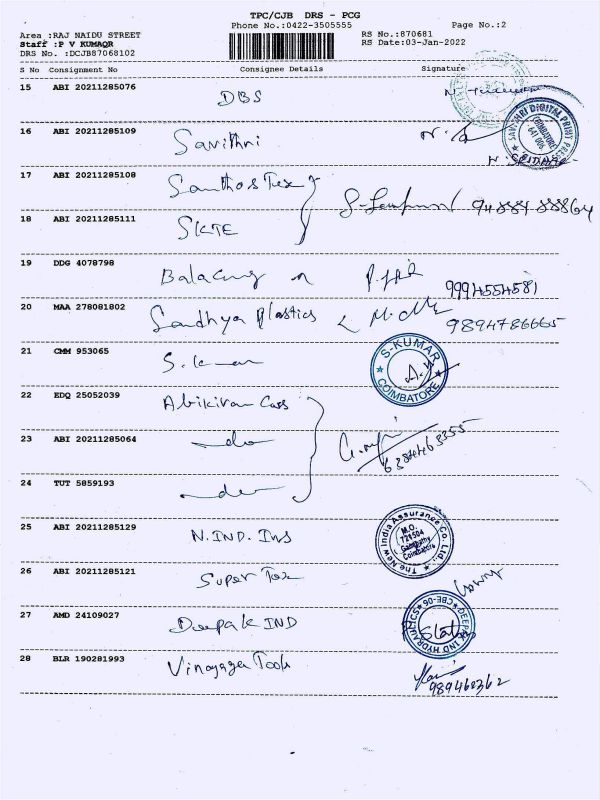 TPC/CJB DRS - PCG
Phone No.:0422-3505555
Page No.:2
Area :RAJ NAIDU STREET
RS No.:870681
Staff :P V KUMAQR
RS Date:03-Jan-2022
DRS No. :DCJB87068102
S No Consignment No Consignee Details Signature
15 ABI 20211285076 DBS
16 ABI 20211285109 Savithri
SAVITHRI DIGITAL PRINT PRESS
COIMBATORE
641 006
17 ABI 20211285108 Santhos Tex
18 ABI 20211285111 SKTE
19 DDG 4078798
9994554581
20 MAA 278081802 Sandhya Plastics
9894786665
21 CMM 953065 S. Kumar
S-KUMAR
COIMBATORE
22 EDQ 25052039 Abikiran Cars
23 ABI 20211285064 do
6384463355
24 TUT 5859193 do
25 ABI 20211285129 N.IND. Ins
The New India Assurance Co. Ltd.
M.O.
721504
Coimbatore
26 ABI 20211285121 Super Tex
27 AMD 24109027 Deepak IND
DEEPAK IND HYDRAULICS
CBE-06
28 BLR 190281993 Vinayaga Tools
989460362